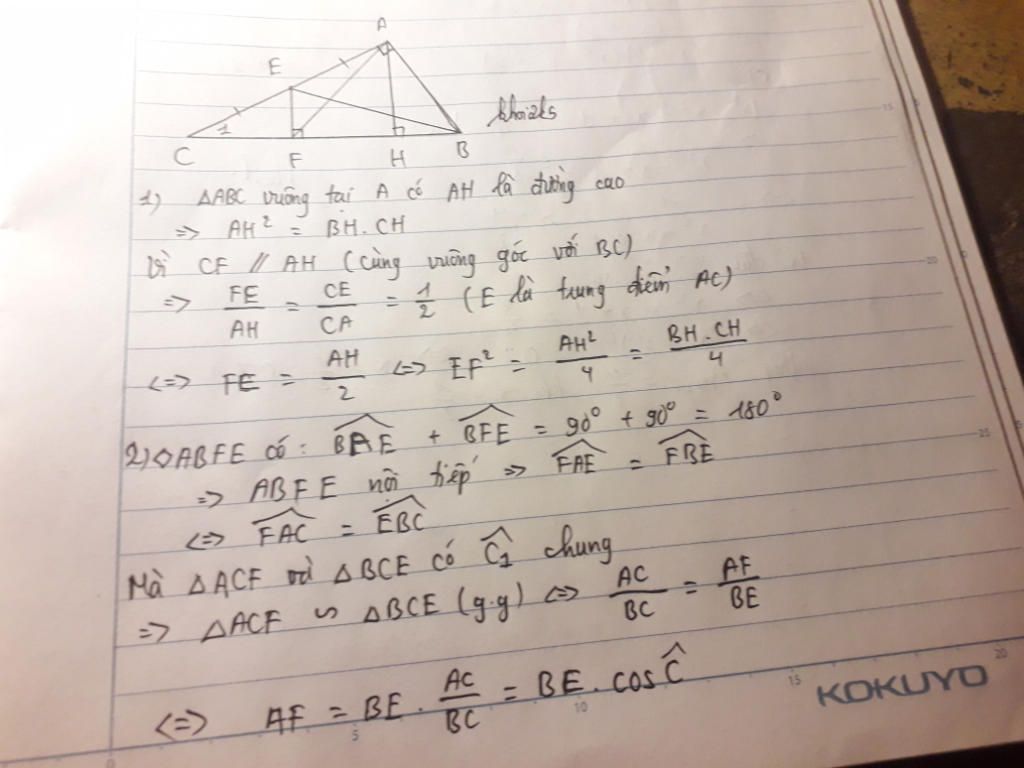 A
E
khoi2k5
1
C F H B
1) ΔABC vuông tại A có AH là đường cao
=> AH² = BH.CH
Vì CF // AH (cùng vuông góc với BC)
=> FE/AH = CE/CA = 1/2 (E là trung điểm AC)
<=> FE = AH/2 <=> EF² = AH²/4 = BH.CH/4
2) ◇ABFE có: \widehat{BAE} + \widehat{BFE} = 90° + 90° = 180°
=> ABFE nội tiếp => \widehat{FAE} = \widehat{FBE}
<=> \widehat{FAC} = \widehat{EBC}
Mà ΔACF và ΔBCE có \widehat{C₁} chung
=> ΔACF ∽ ΔBCE (g.g) <=> AC/BC = AF/BE
<=> AF = BE . AC/BC = BE . cos \widehat{C}
KOKUYO
5 10 15 20
15
20
25